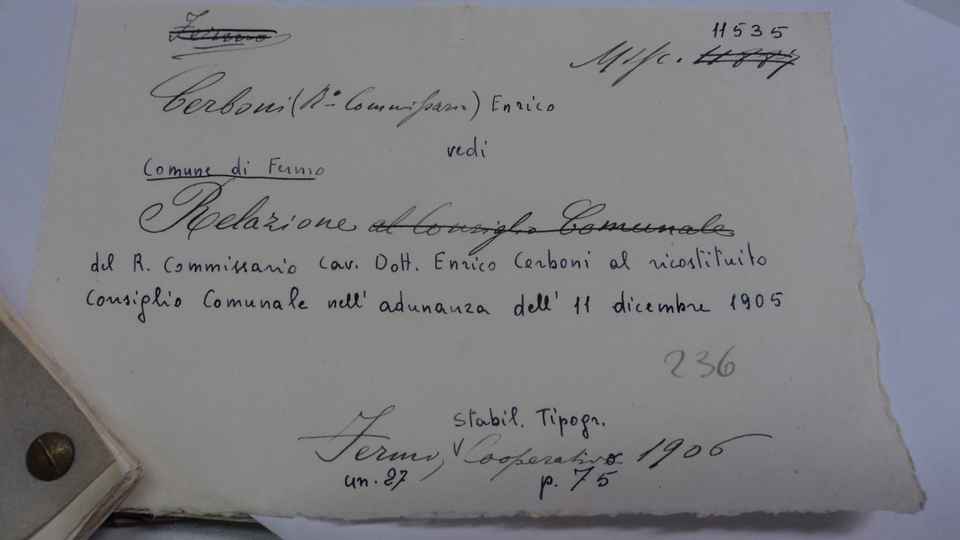 Fermo
11535
Misc. 11887
Cerboni (R.o Commissario) Enrico
vedi
Comune di Fermo
Relazione al Consiglio Comunale
del R. Commissario Cav. Dott. Enrico Cerboni al ricostituito
Consiglio Comunale nell' adunanza dell' 11 dicembre 1905
236
Stabil. Tipogr.
Fermo, Cooperativo 1906
un. 27 p. 75